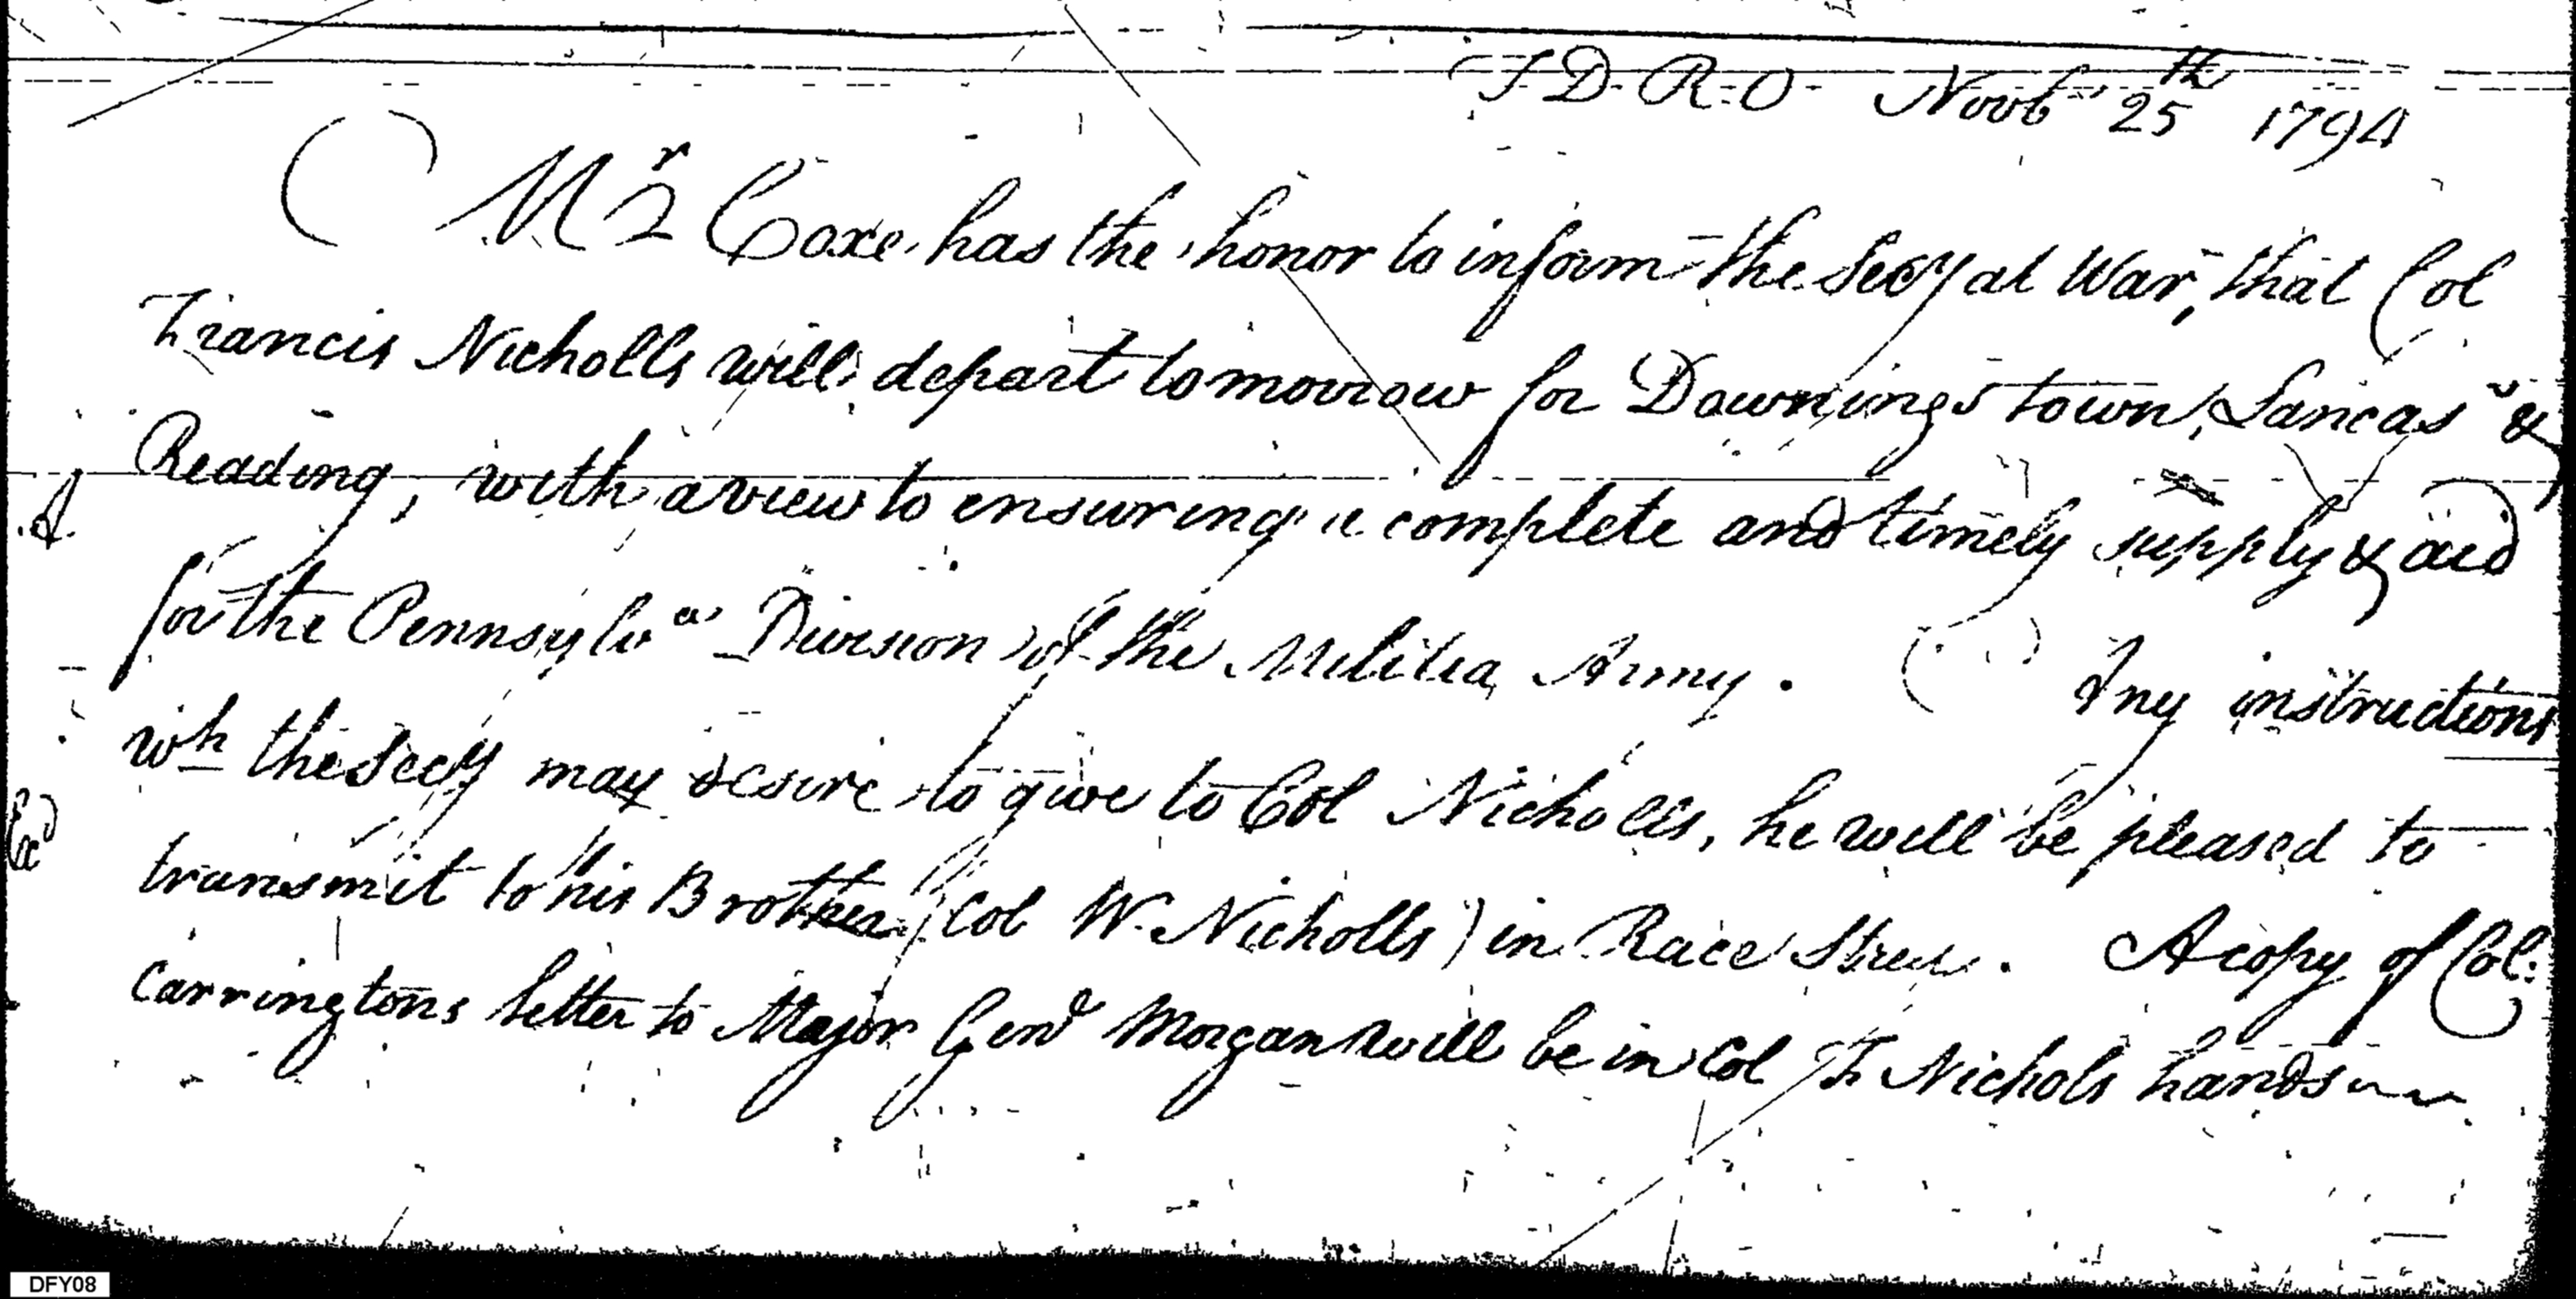 T. D. R. O. Novbr 25th 1794
Mr Coxe has the honor to inform the Secy at War, that Col
Francis Nicholls will depart tomorrow for Downingstown, Lancasr &
Reading, with a view to ensuring a complete and timely supply & aid
for the Pennsylva Division of the Militia Army. Any instructions
wh the Secy may desire to give to Col Nicholls, he will be pleased to
transmit to his Brother (Col W. Nicholls) in Race Street. A copy of Col:
Carringtons letter to Major Genl Morgan will be in Col Fr Nichols hands
DFY08